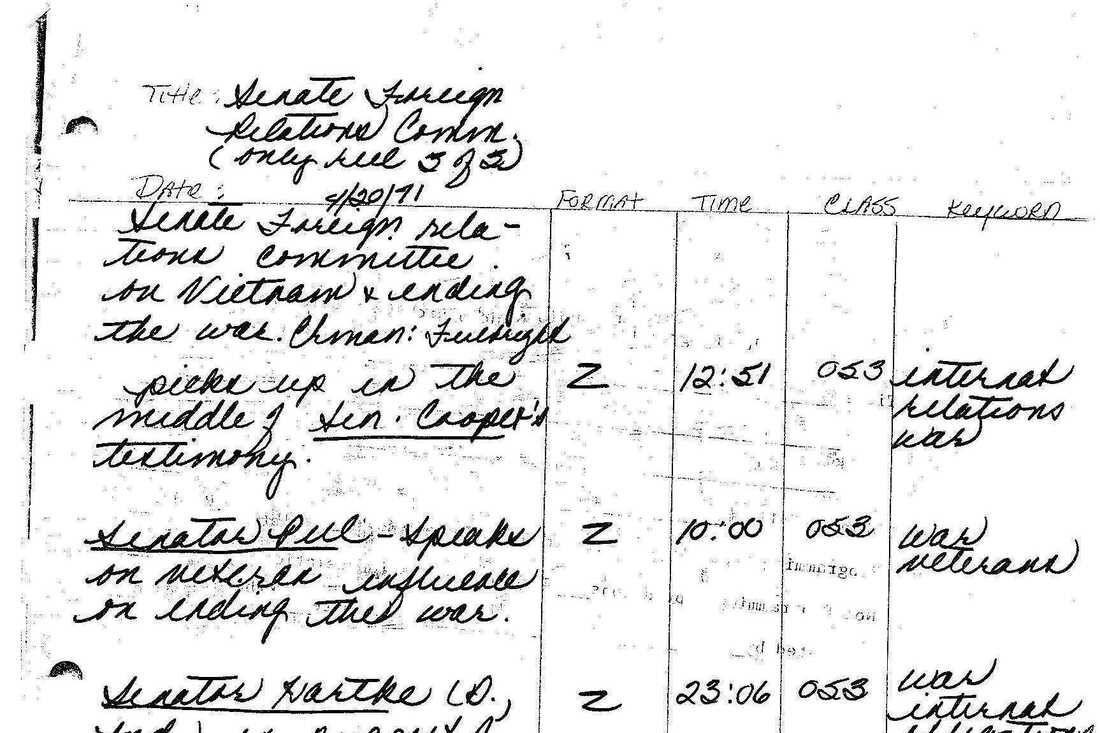 Title: Senate Foreign
Relations Comm.
(only reel 3 of 3)
Date: 4/20/71
FORMAT TIME CLASS KEYWORD
Senate Foreign rela-
tions committee
on Vietnam & ending
the war. Chman: Fulbright
picks up in the Z 12:51 053 internat
middle of Sen. Cooper's relations
testimony. war
Senator Pell - Speaks Z 10:00 053 war
on veteran influence veterans
on ending the war.
Senator Hartke (D., Z 23:06 053 war
internat